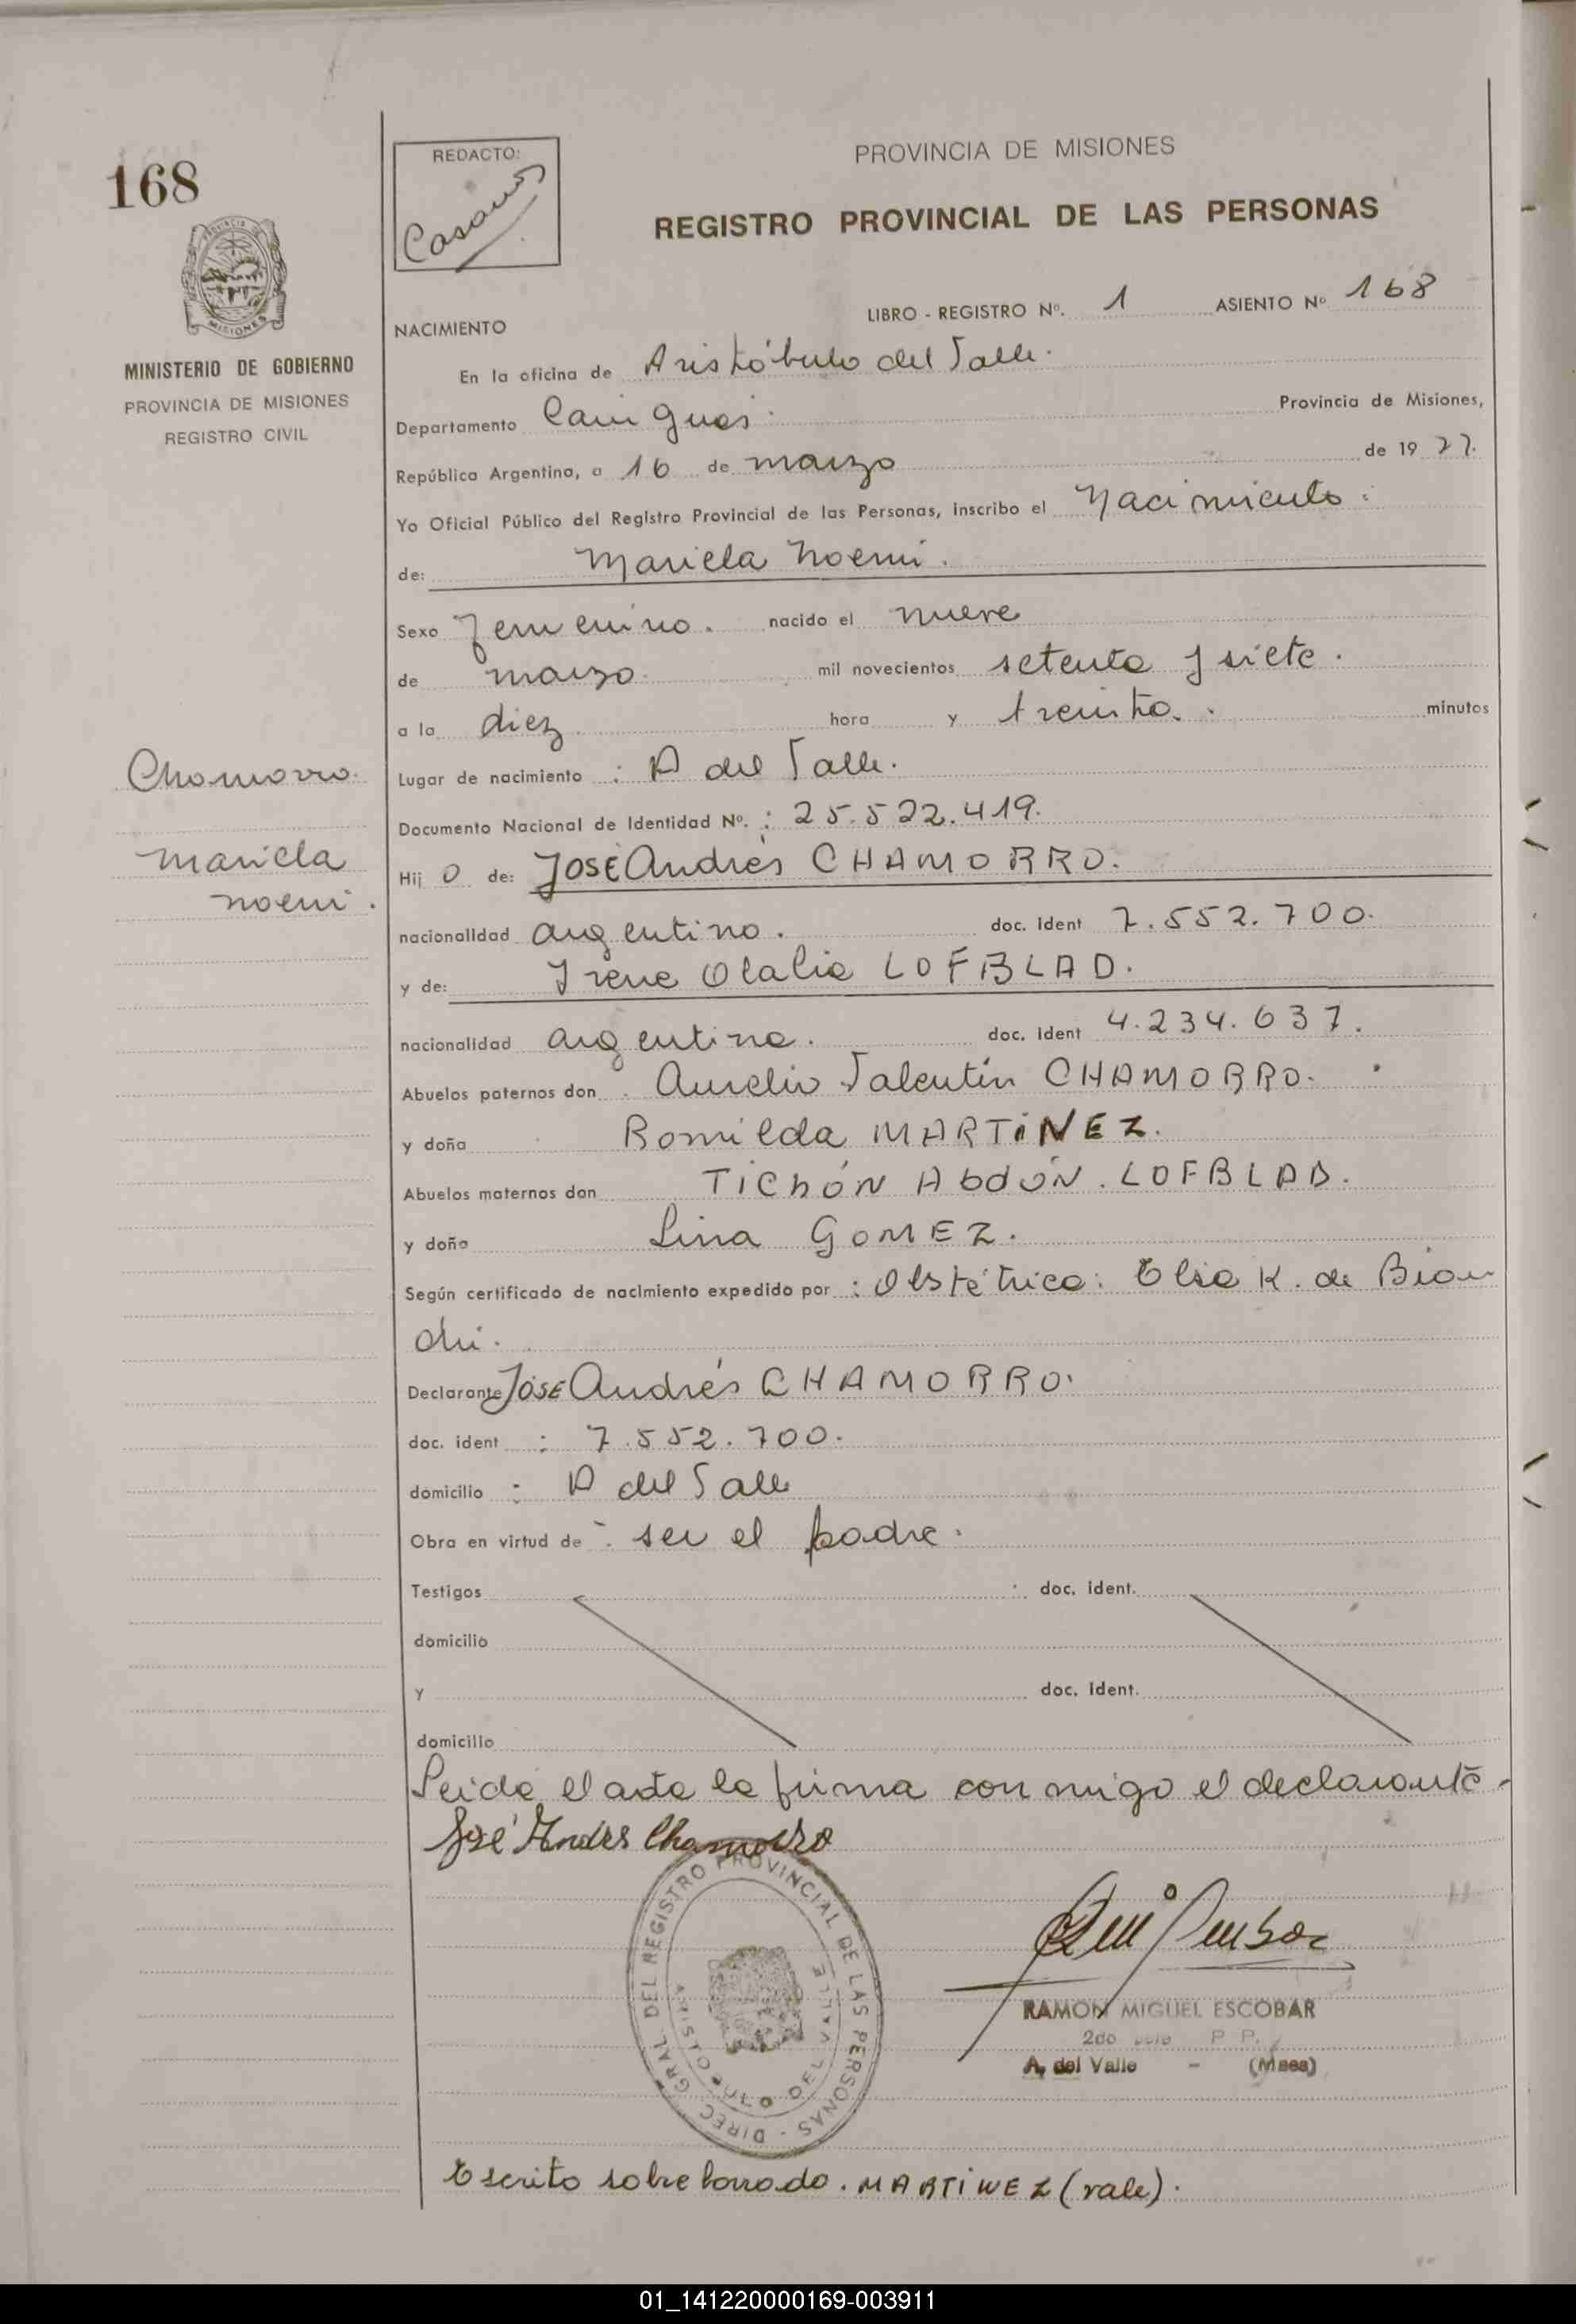 168
MINISTERIO DE GOBIERNO
PROVINCIA DE MISIONES
REGISTRO CIVIL
REDACTO:
PROVINCIA DE MISIONES
REGISTRO PROVINCIAL DE LAS PERSONAS
NACIMIENTO
LIBRO - REGISTRO Nº. 1 ASIENTO Nº 168
En la oficina de Aristóbulo del Valle.
Departamento Cainguas. Provincia de Misiones,
República Argentina, a 16 de marzo de 1977.
Yo Oficial Público del Registro Provincial de las Personas, inscribo el Nacimiento:
de: Mariela Noemi.
Sexo Femenino. nacido el nueve
de marzo mil novecientos setenta y siete.
a la diez hora y treinta. minutos
Chamorro.
Mariela
Noemi.
Lugar de nacimiento : A del Valle.
Documento Nacional de Identidad Nº. : 25.522.419.
Hij o de: José Andrés CHAMORRO.
nacionalidad argentino. doc. ident 7.552.700.
y de: Irene Olalia LOFBLAD.
nacionalidad argentina. doc. ident 4.234.637.
Abuelos paternos don Aurelio Valentín CHAMORRO.
y doña Romilda MARTINEZ.
Abuelos maternos don TICHÓN Abdón. LOFBLAD.
y doña Lina GOMEZ.
Según certificado de nacimiento expedido por : Obstétrica: Elsa K. de Bion
di.
Declarante José Andrés CHAMORRO.
doc. ident : 7.552.700.
domicilio : A del Valle
Obra en virtud de : ser el padre.
Testigos doc. ident.
domicilio
y doc. ident.
domicilio
Leida el acta la firma con migo el declarante.
José Andres Chamorro
DIREC. GRAL. DEL REGISTRO PROVINCIAL DE LAS PERSONAS -
ARISTOBULO DEL VALLE
RAMON MIGUEL ESCOBAR
2do P. P.
A. del Valle - (Mnes)
Escrito sobre borrado. MARTINEZ (vale).
01_141220000169-003911